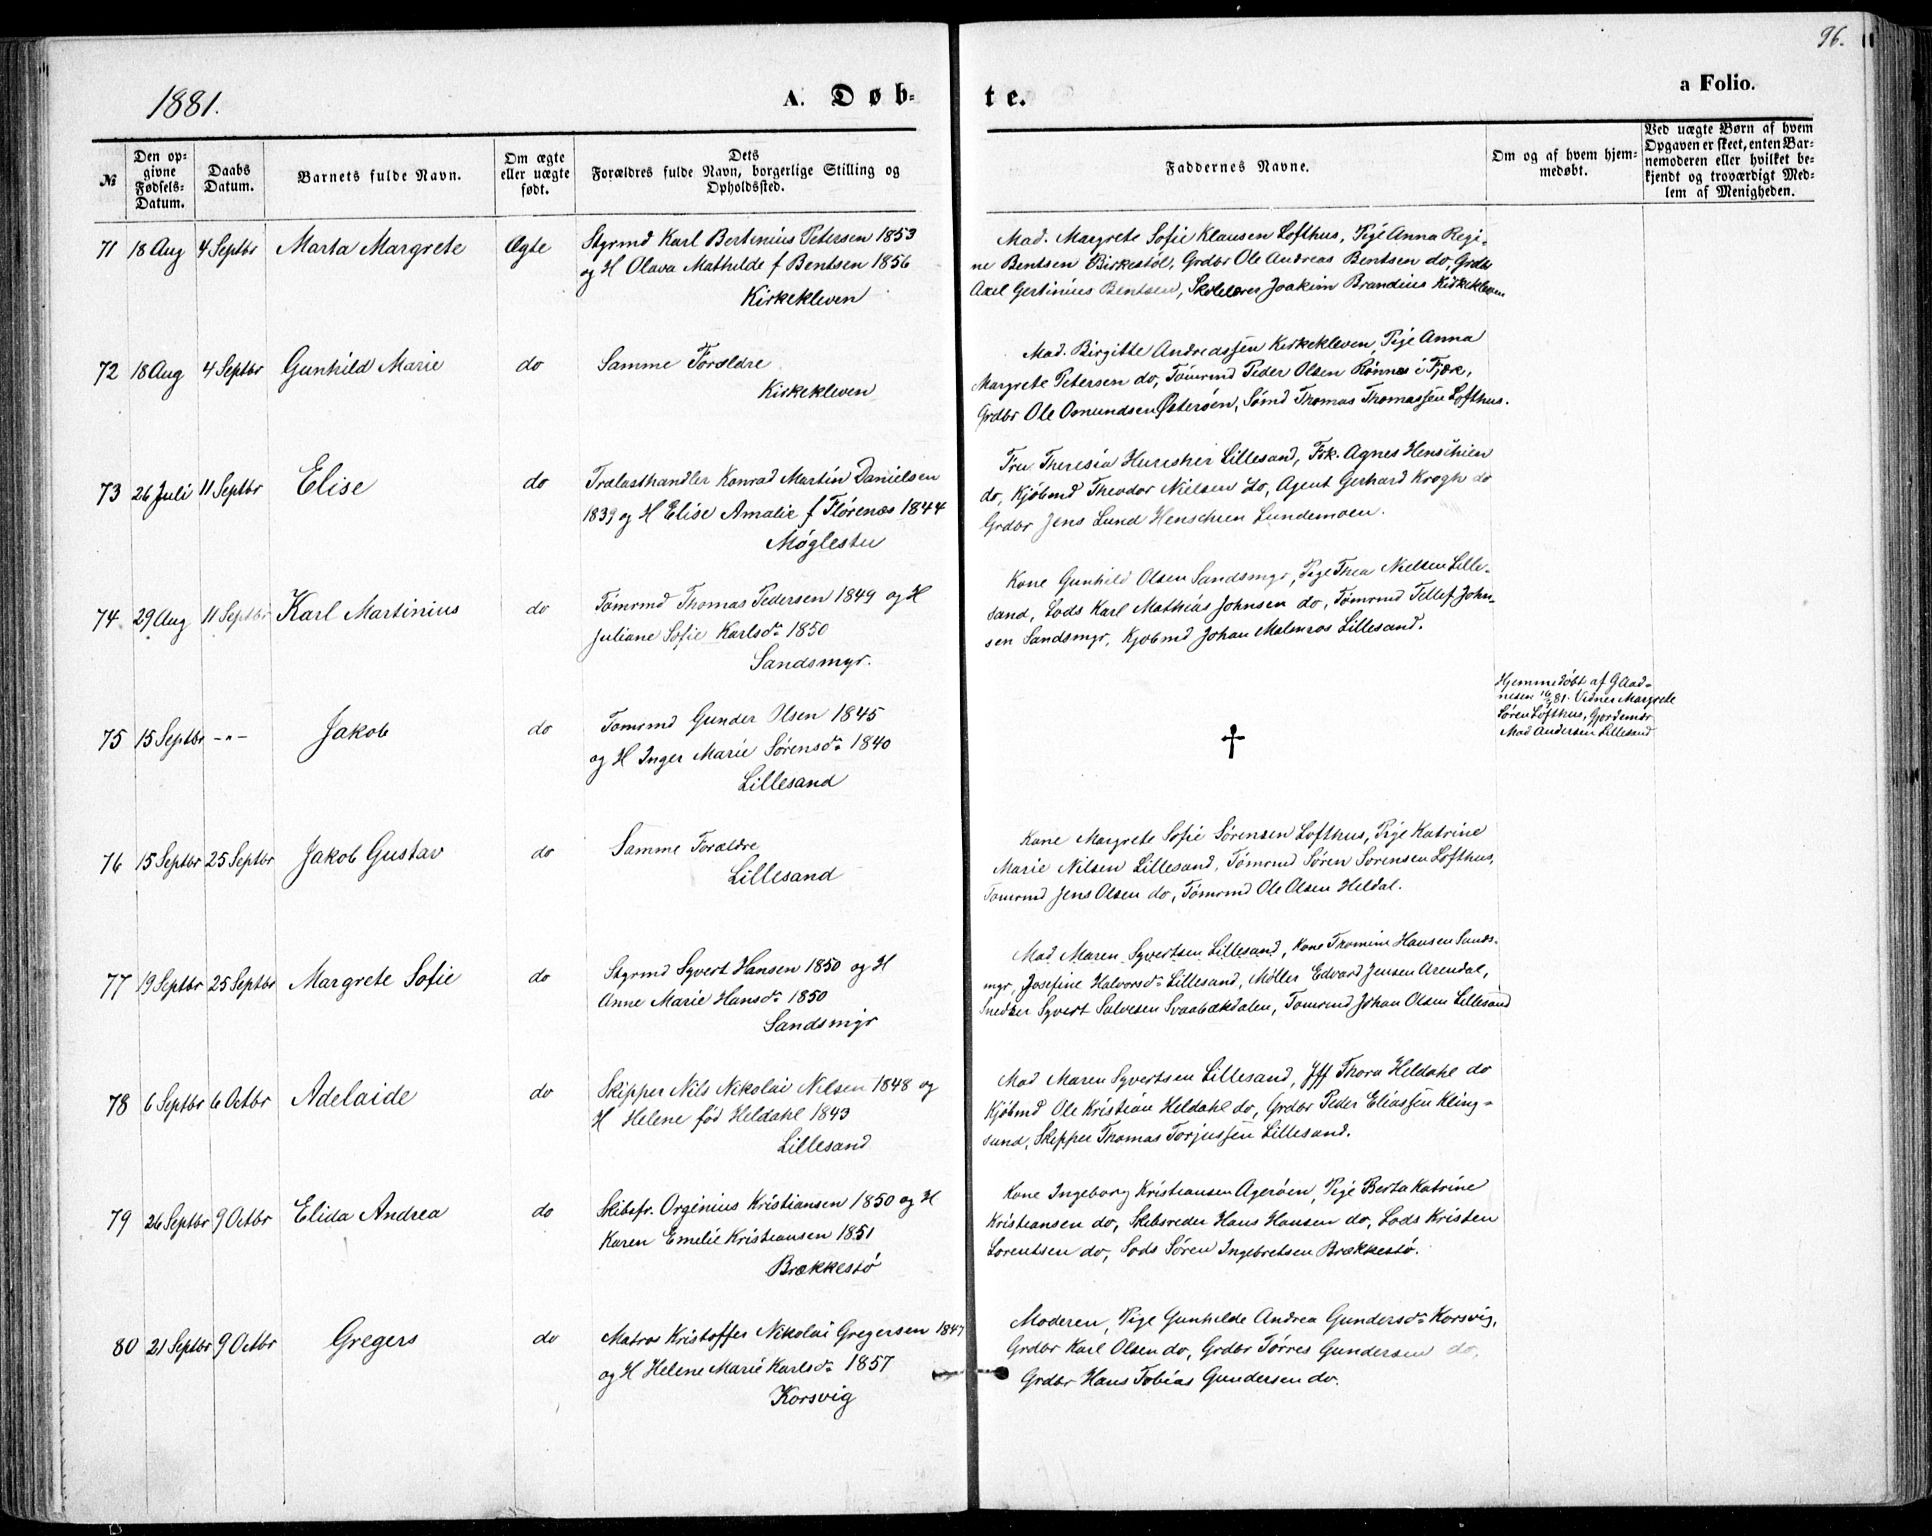 96.
1881.
A. Døb-
te.
a Folio.
№
Den op-
givne
Fødsels-
Datum.
Daabs
Datum.
Barnets fulde Navn.
Om ægte
eller uægte
født.
Dets
Forældres fulde Navn, borgerlige Stilling og
Opholdssted.
Faddernes Navne.
Om og af hvem hjem-
medøbt.
Ved uægte Børn af hvem
Opgaven er skeet, enten Bar-
nemoderen eller hvilket be-
kjendt og troværdigt Med-
lem af Menigheden.
71 18 Aug 4 Septbr Marta Margrete Ægte
Styrmd Karl Bertinius Petersen 1853
og H Olava Mathilde f Bentsen 1856
Kirkekleven
Mad. Margrete Sofie Klausen Lofthus, Pige Anna Regi-
ne Bentsen Birkestøl, Grdbr Ole Andreas Bentsen do, Grdbr
Axel Gertinius Bentsen, Skolelærer Joakim Brandius Kirkekleven
72 18 Aug 4 Septbr Gunhild Marie do
Samme Forældre
Kirkekleven
Mad. Birgitte Andreassen Kirkekleven, Pige Anna
Margrete Petersen do, Tømrmd Peder Olsen Rønnes i Fjære,
Grdbr Ole Omundsen Østerøen, Sømd Thomas Thomassen Lofthus.
73 26 Juli 11 Septbr Elise do
Trælasthandler Konrad Martin Danielsen
1839 og H Elise Amalie f Flørenæs 1844
Møglestu
Fru Theresia Lillesand, Frk. Agnes Henschien
do, Kjøbmd Theodor Nielsen do, Agent Gerhard Krogh do
Grdbr Jens Lund Henschien Lundemoen.
74 29 Aug 11 Septbr Karl Martinius do
Tømrmd Thomas Pedersen 1849 og H
Juliane Sofie Karlsdr 1850
Sandsmyr.
Kone Gunhild Olsen Sandsmyr, Pige Thea Nielsen Lille-
sand, Lods Karl Mathias Johnsen do, Tømrmd Tellef John-
sen Sandsmyr, Kjøbmd Johan Malmros Lillesand.
75 15 Septbr -"- Jakob do
Tømrmd Gunder Olsen 1845
og H Inger Marie Sørensdr 1840
Lillesand
†
Hjemmedøbt af G Aad-
nesen 16/9 81. Vidner Margrete
Søren Lofthus, Gjordemdr
Mad Andersen Lillesand
76 15 Septbr 25 Septbr Jakob Gustav do
Samme Forældre
Lillesand
Kone Margrete Sofie Sørensen Lofthus, Pige Katrine
Marie Nilsen Lillesand, Tømrmd Søren Sørensen Lofthus,
Tømrmd Jens Olsen do, Tømrmd Ole Olsen Heldal.
77 19 Septbr 25 Septbr Margrete Sofie do
Styrmd Syvert Hansen 1850 og H
Anne Marie Hansdr 1850
Sandsmyr
Mad Maren Syvertsen Lillesand, Kone Thomine Hansen Sands-
myr, Josefine Halvorsdr Lillesand, Møller Edvard Jensen Arendal,
Snedker Syvert Salvesen Svaabækdalen, Tømrmd Johan Olsen Lillesand
78 6 Septbr 6 Octbr Adelaide do
Skipper Nils Nikolai Nilsen 1848 og
H Helene fød Heldahl 1843
Lillesand
Mad Maren Syvertsen Lillesand, Jff Thora Heldahl do
Kjøbmd Ole Kristian Heldahl do, Grdbr Peder Eliassen Kling-
sund, Skipper Thomas Torjussen Lillesand.
79 26 Septbr 9 Octbr Elida Andrea do
Skibsfr. Orginius Kristiansen 1850 og H
Karen Emilie Kristiansen 1851
Brækkestø
Kone Ingeborg Kristiansen Agerøen, Pige Berta Katrine
Kristiansen do, Skibsreder Hans Hansen do, Lods Kristen
Lorentsen do, Lods Søren Ingebretsen Brækkestø.
80 21 Septbr 9 Octbr Gregers do
Matros Kristoffer Nikolai Gregersen 1847
og H Helene Marie Karlsdr 1857
Korsvig
Moderen, Pige Gunhilde Andrea Gundersdr Korsvig,
Grdbr Karl Olsen do, Grdbr Tørres Gundersen do,
Grdbr Hans Tobias Gundersen do.